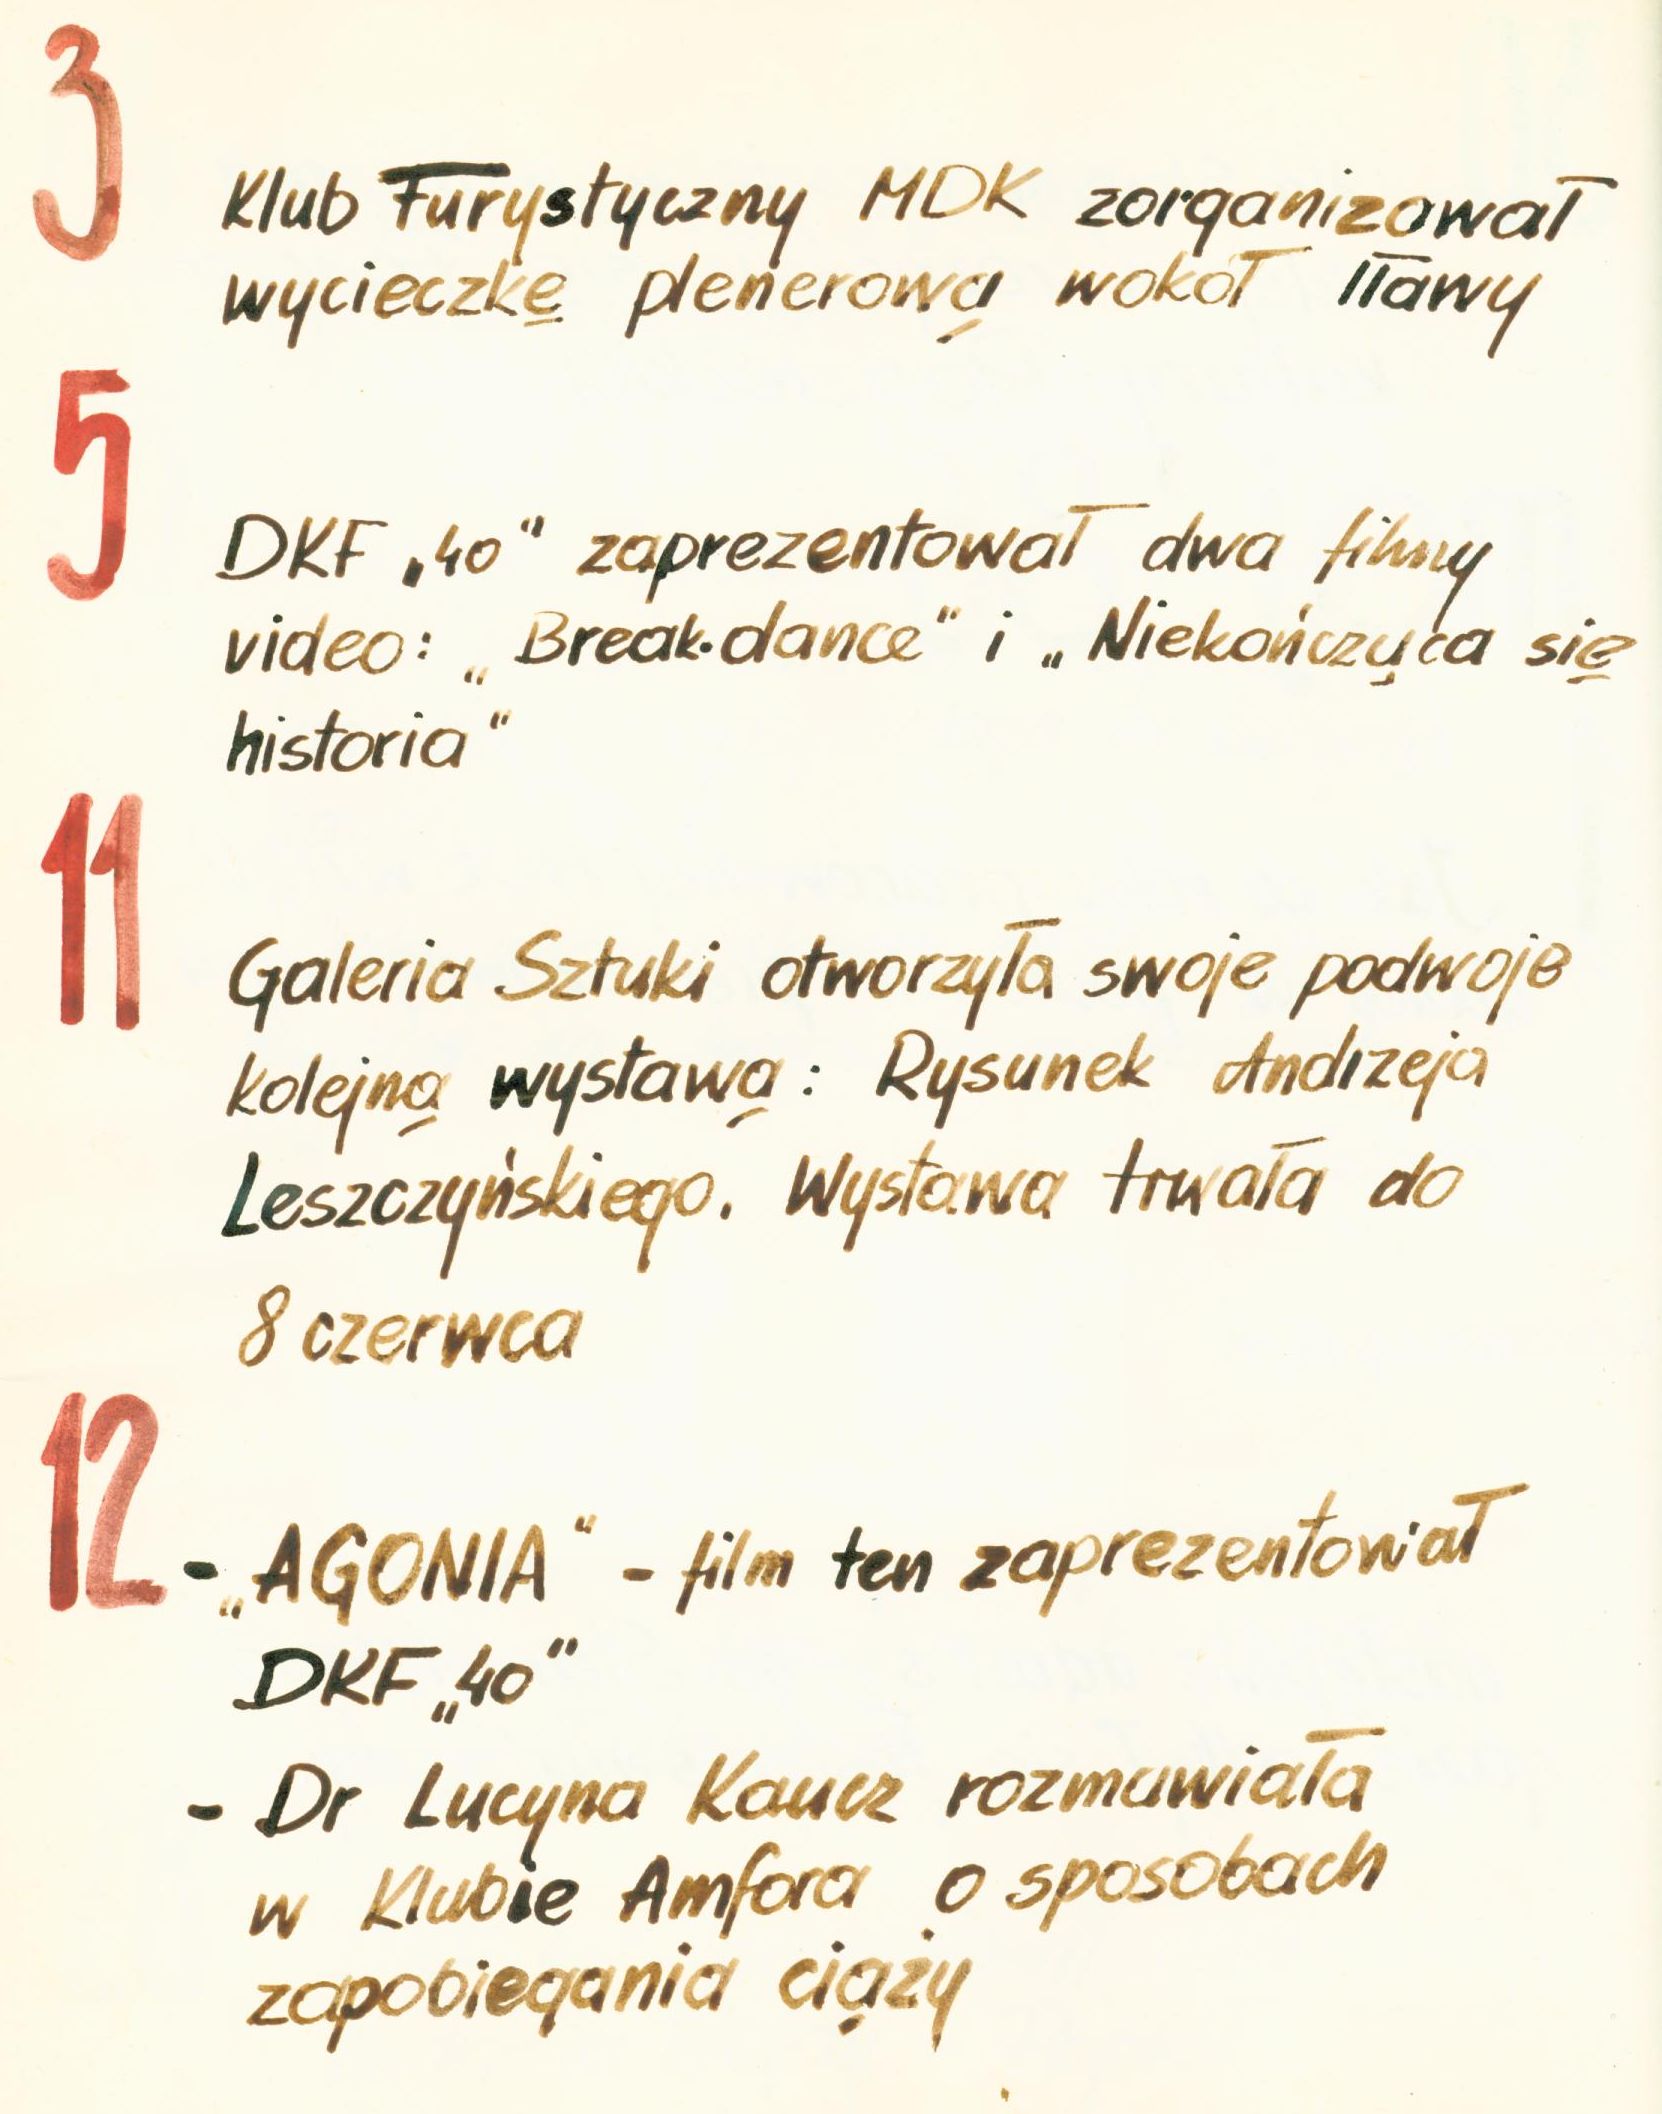 3
Klub Turystyczny MDK zorganizował
wycieczkę plenerową wokół Iławy
5
DKF „40" zaprezentował dwa filmy
video: „Break-dance" i „Niekończąca się
historia"
11
Galeria Sztuki otworzyła swoje podwoje
kolejną wystawą: Rysunek Andrzeja
Leszczyńskiego. Wystawa trwała do
8 czerwca
12
- „AGONIA" - film ten zaprezentował
DKF „40"
- Dr Lucyna Kaucz rozmawiała
w Klubie Amfora o sposobach
zapobiegania ciąży